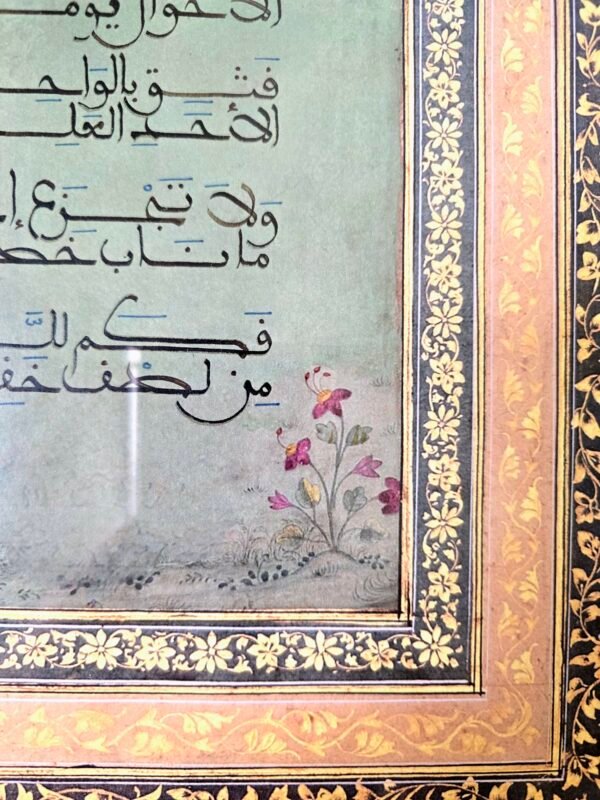 الأحوال يوما
فثق بالواحـ
الأحد العلـ
ولا تجزع إ
ما ناب خطـ
فكم للـ
من لطف خفـ